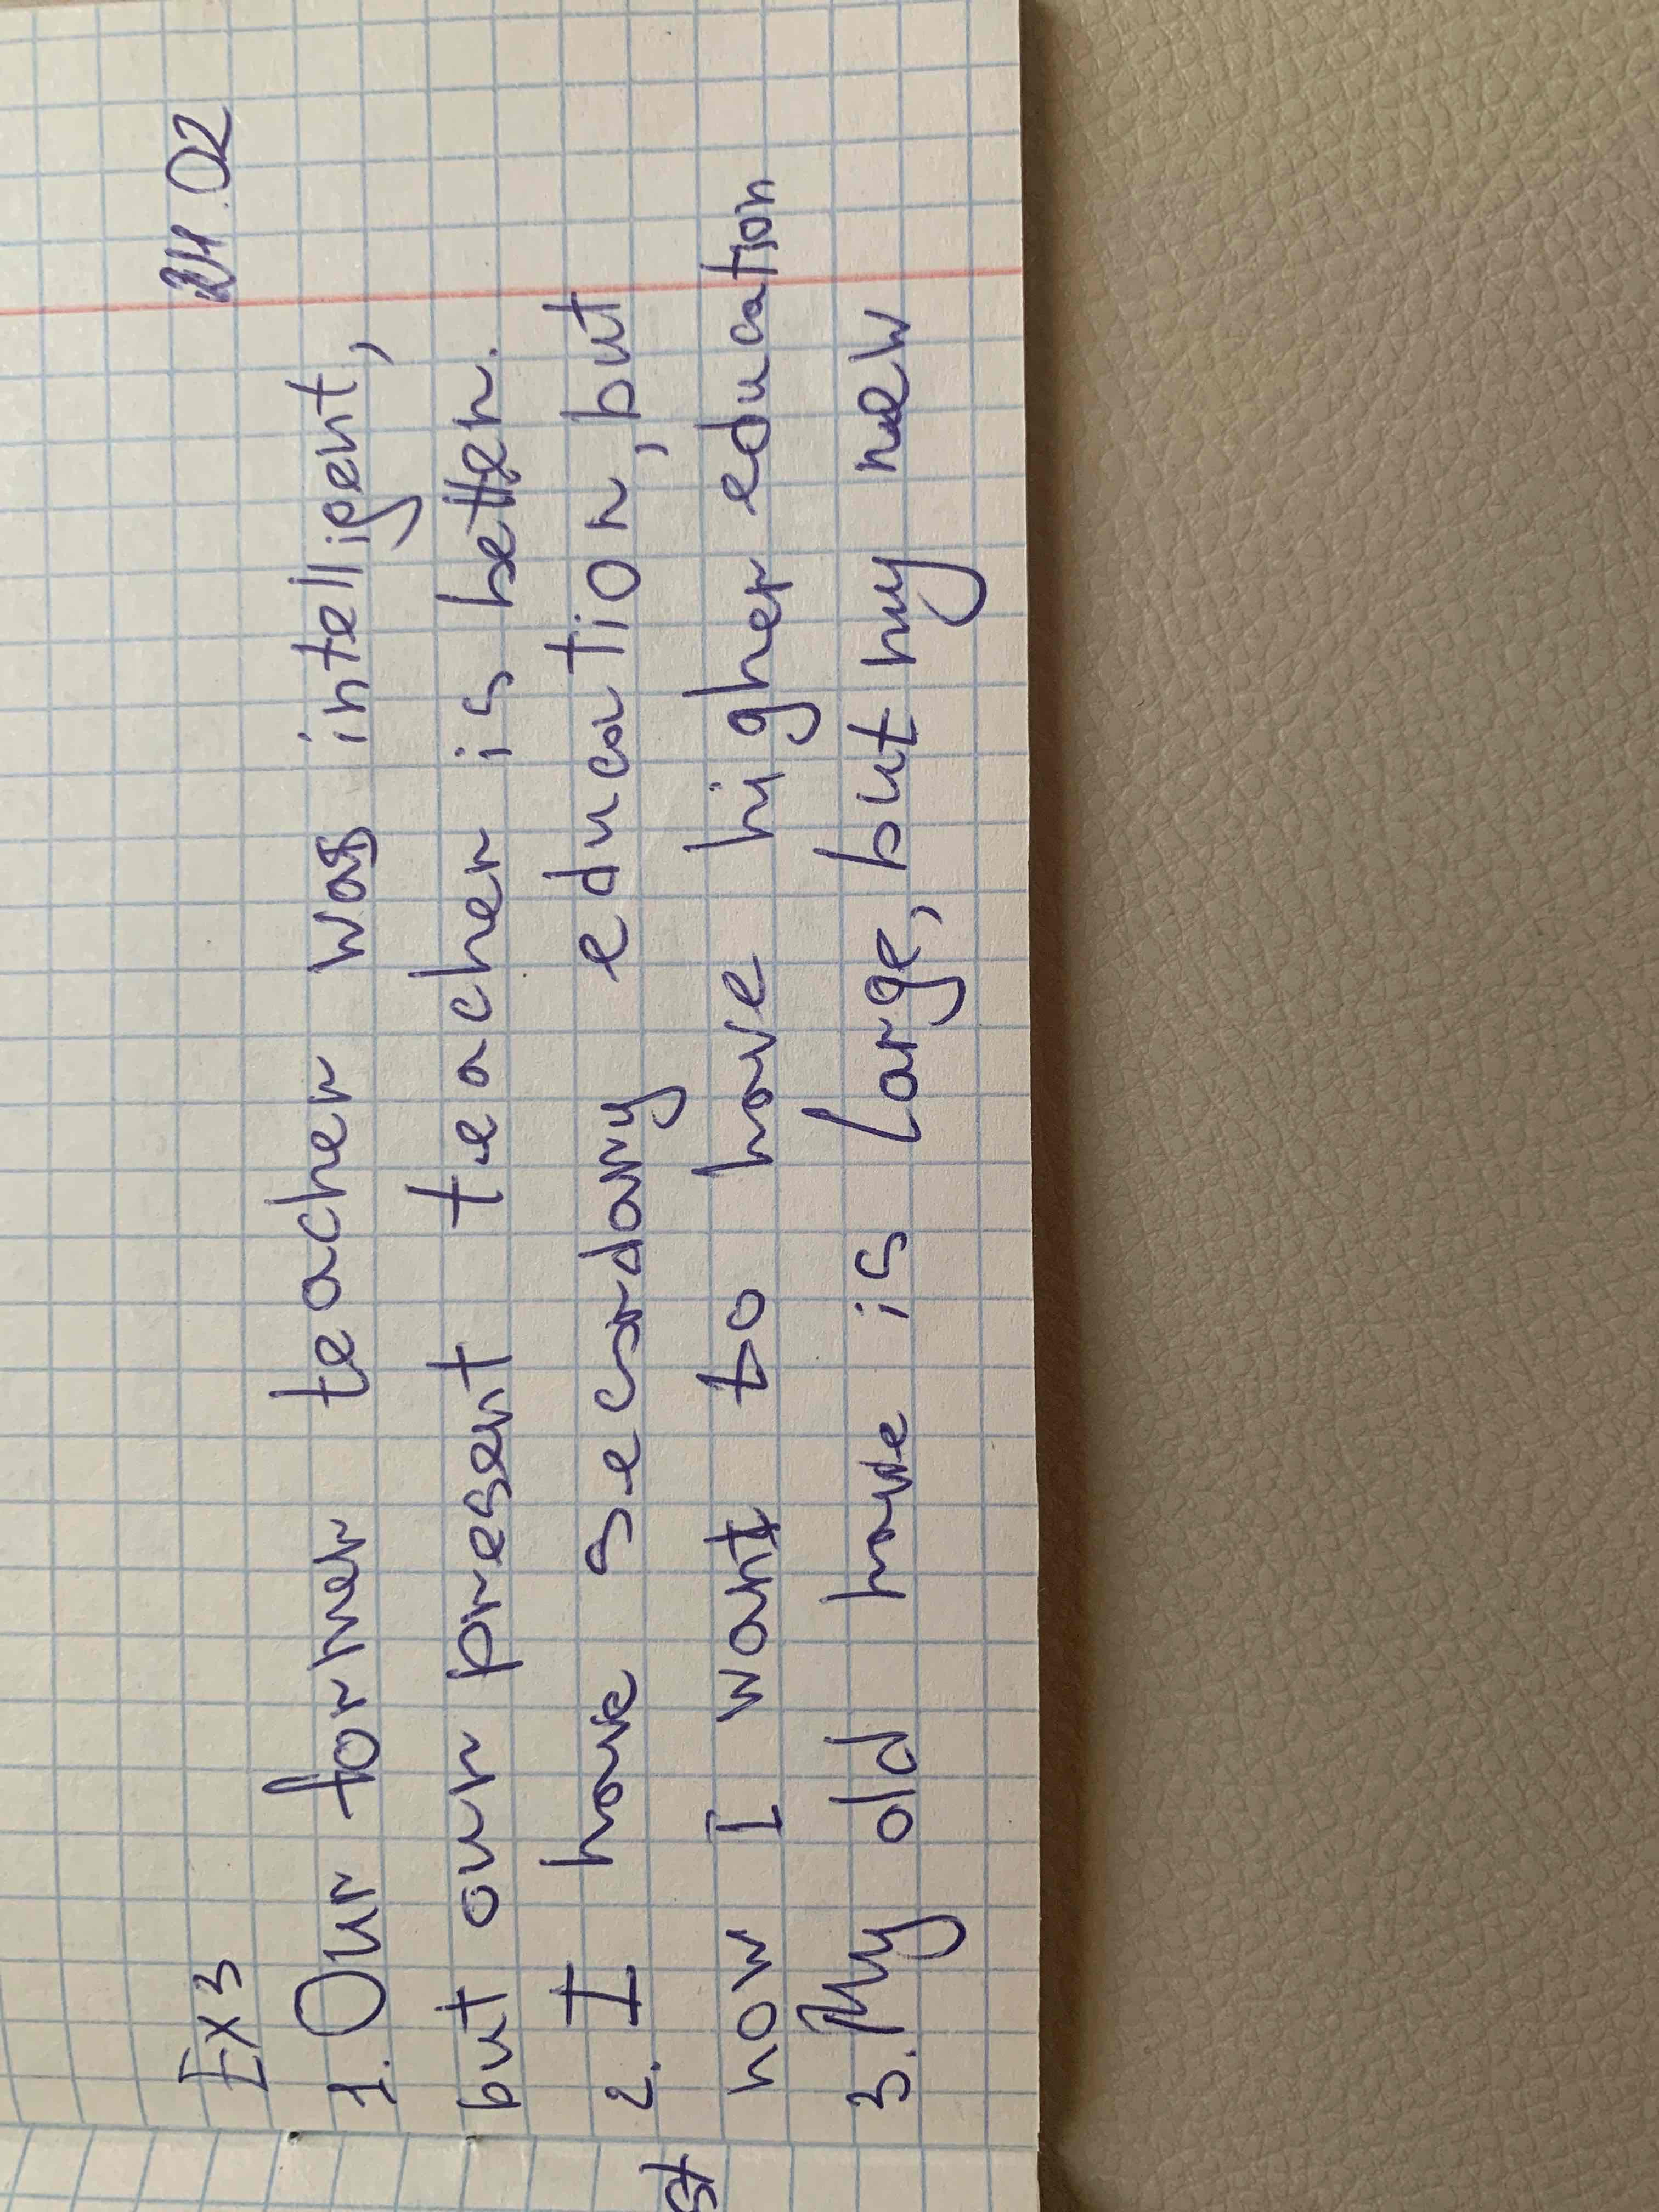 24.02
Ex 3
1. Our former teacher was intelligent,
but our present teacher is better.
2. I have secondary education, but
now I want to have higher education
3. My old have is large, but my new
st